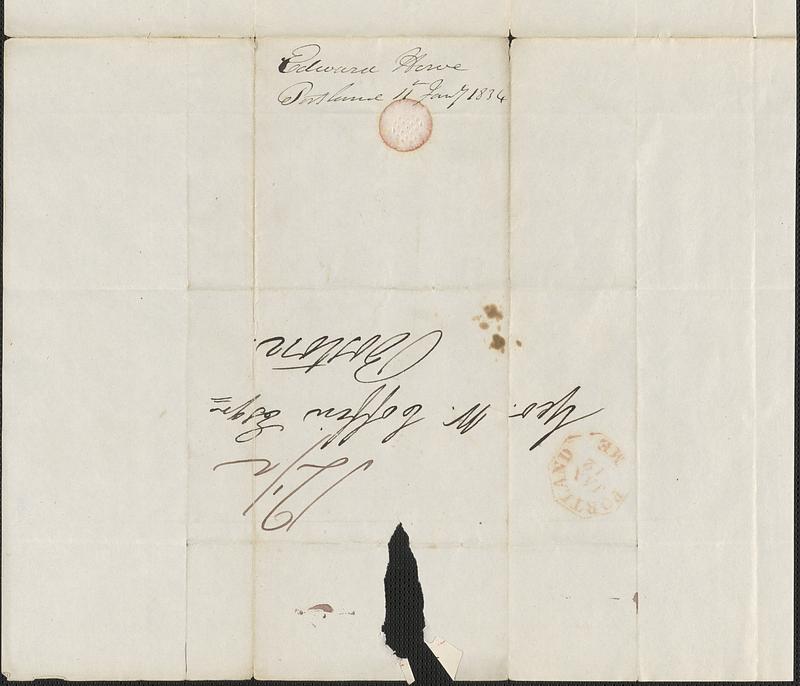 Edward Howe
Portland 11th Jany 1834
Geo. W. Coffin Esqre
Boston.
PORTLAND ME.
JAN
12